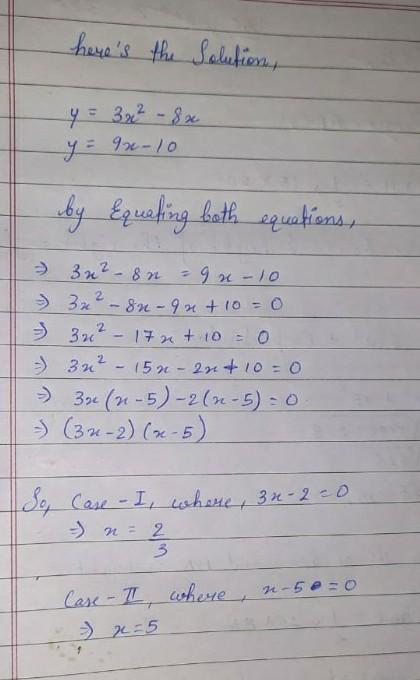 here's the Solution,
y = 3x² - 8x
y = 9x - 10
by Equating both equations,
⇒ 3x² - 8x = 9x - 10
⇒ 3x² - 8x - 9x + 10 = 0
⇒ 3x² - 17x + 10 = 0
⇒ 3x² - 15x - 2x + 10 = 0
⇒ 3x(x - 5) - 2(x - 5) = 0
⇒ (3x - 2)(x - 5)
So, Case - I, where, 3x - 2 = 0
⇒ x = 2/3
Case - II, where, x - 5 = 0
⇒ x = 5